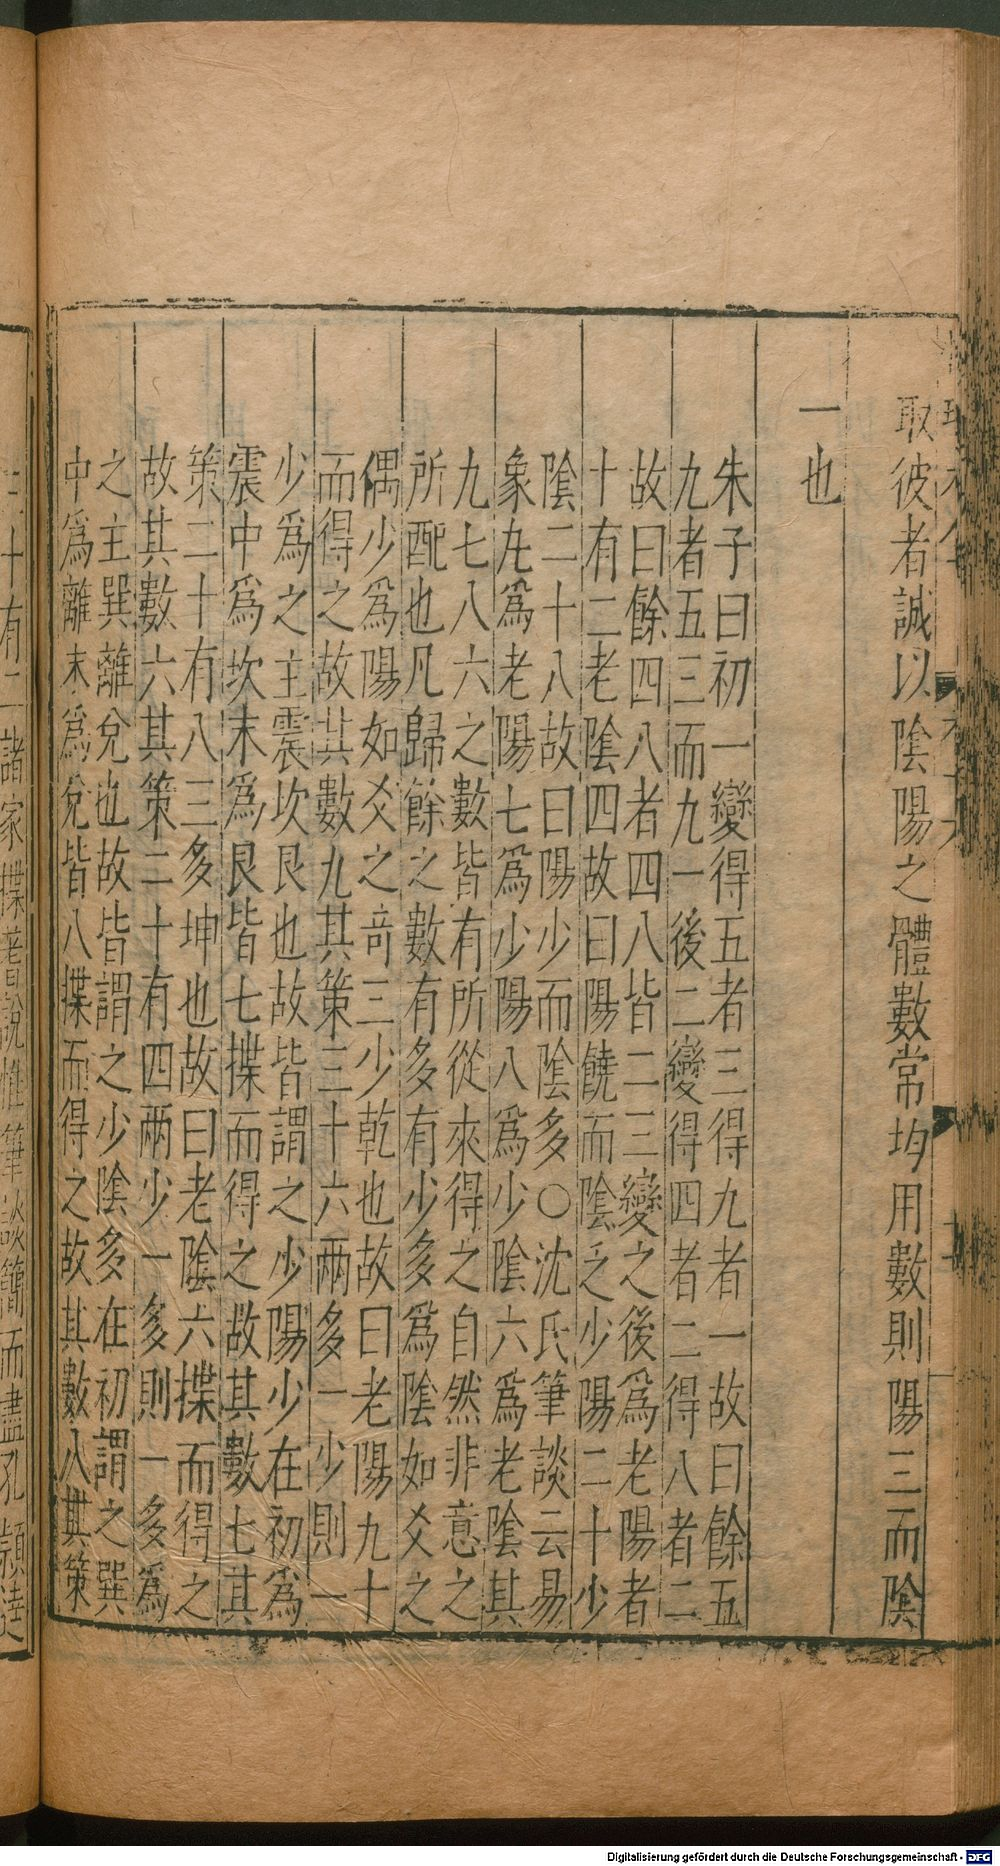 取彼者誠以陰陽之體數常均用數則陽三而陰
一也
朱子曰初一變得五者三得九者一故曰餘五
九者五三而九一後二變得四者二得八者二
故曰餘四八者四八皆二三變之後爲老陽者
十有二老陰四故曰陽饒而陰乏少陽二十少
陰二十八故曰陽少而陰多○沈氏筆談云易
象九爲老陽七爲少陽八爲少陰六爲老陰其
九七八六之數皆有所從來得之自然非意之
所配也凡歸餘之數有多有少多爲陰如爻之
偶少爲陽如爻之奇三少乾也故曰老陽九十
而得之故其數九其策三十六兩多一少則一
少爲之主震坎艮也故皆謂之少陽少在初爲
震中爲坎末爲艮皆七揲而得之故其數七其
策二十有八三多坤也故曰老陰六揲而得之
故其數六其策二十有四兩少一多則一多爲
之主巽離兌也故皆謂之少陰多在初謂之巽
中爲離末爲兌皆八揲而得之故其數八其策
三十有二諸家揲蓍說惟筆談簡而盡孔穎達
Digitalisierung gefördert durch die Deutsche Forschungsgemeinschaft - DFG